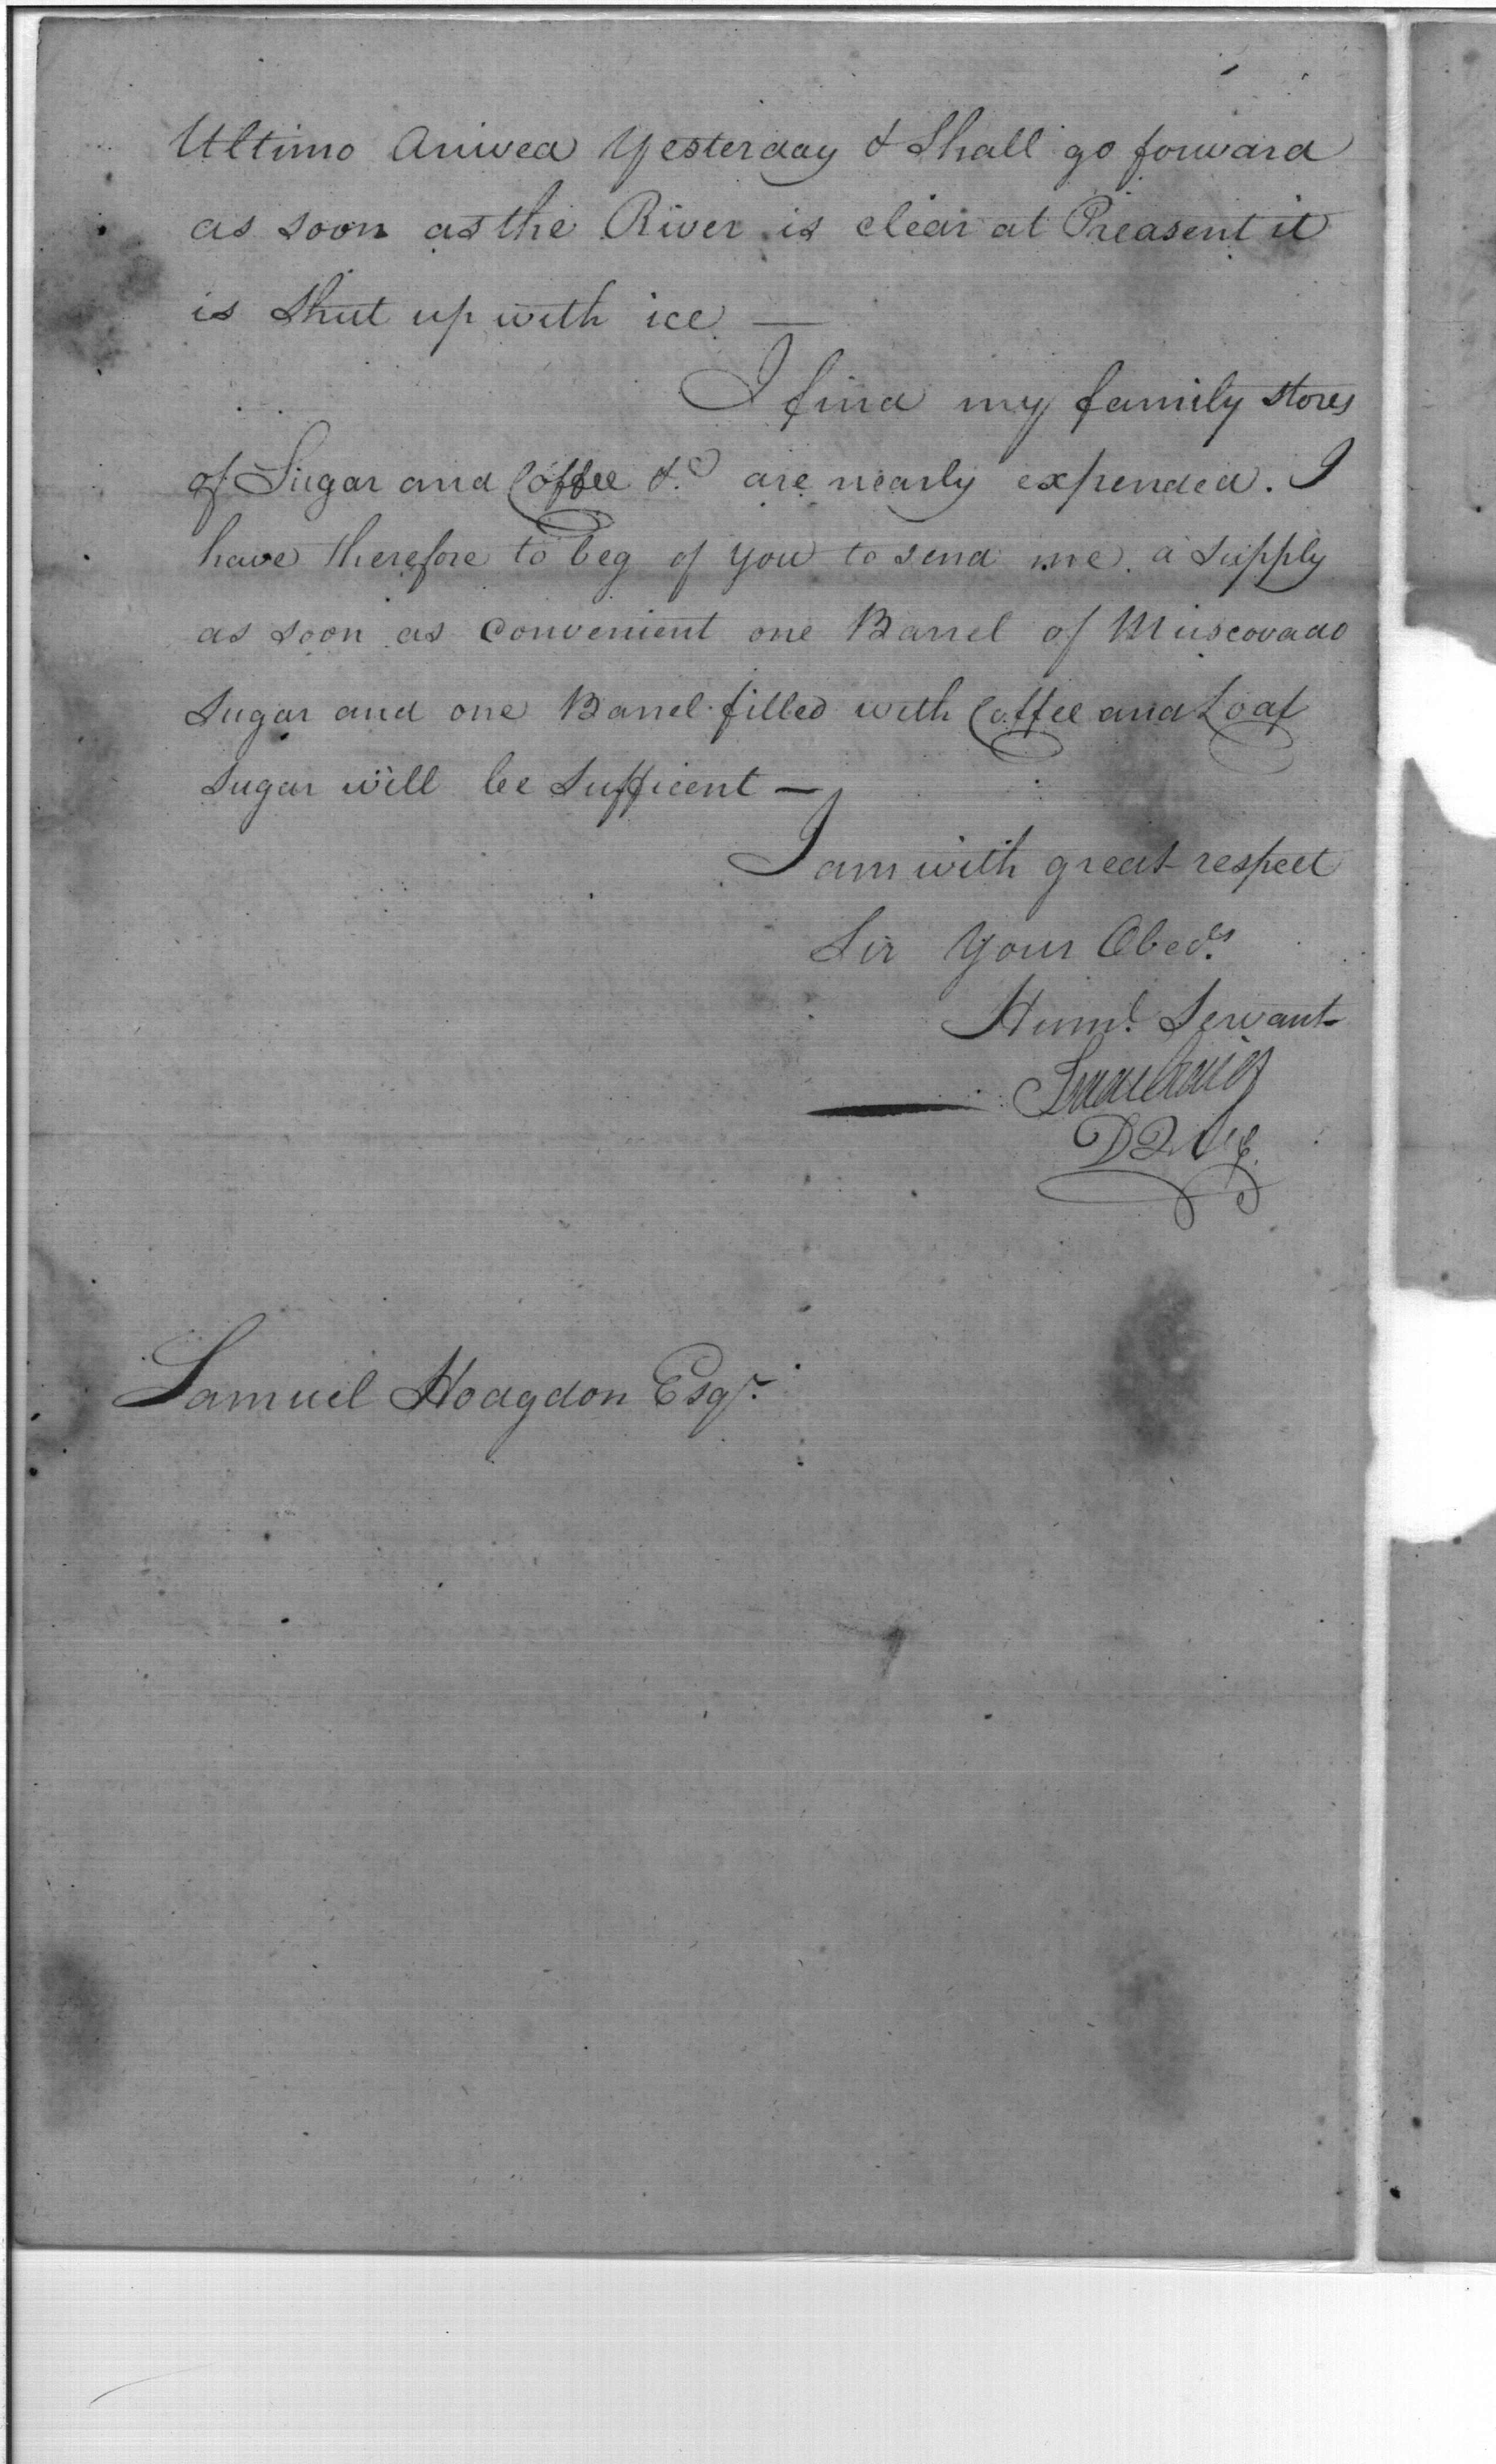 Ultimo Arrived Yesterday & Shall go forward
as soon as the River is clear at Preasent it
is Shut up with ice —
I find my family stores
of Sugar and Coffee &c are nearly expended. I
have therefore to beg of you to send me a supply
as soon as Convenient one Barrel of Muscovado
Sugar and one Barrel filled with Coffee and Loaf
Sugar will be Sufficent —
I am with great respect
Sir Your Obedt
Huml Servant
Isaac Craig
DQMG
Samuel Hodgdon Esqr.